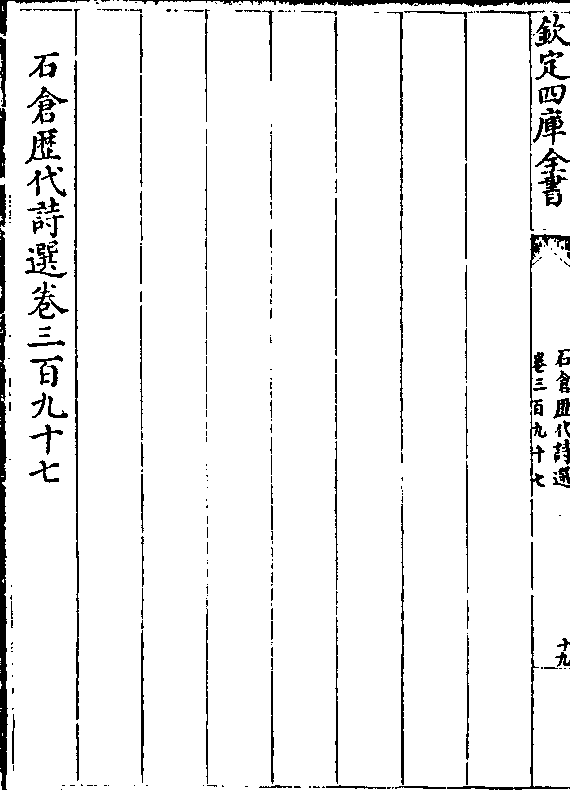 欽定四庫全書
石倉歴代詩選
卷三百九十七
十九
石倉歴代詩選卷三百九十七